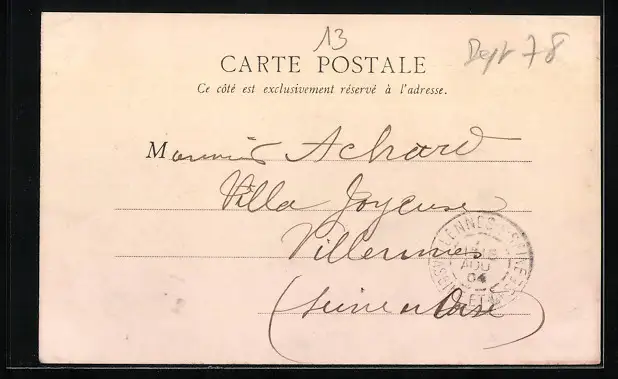 13
Dept 78
CARTE POSTALE
Ce côté est exclusivement réservé à l'adresse.
Monsieur Achard
Villa Joyeuse
Villennes
(Seine et Oise)
AOU
04